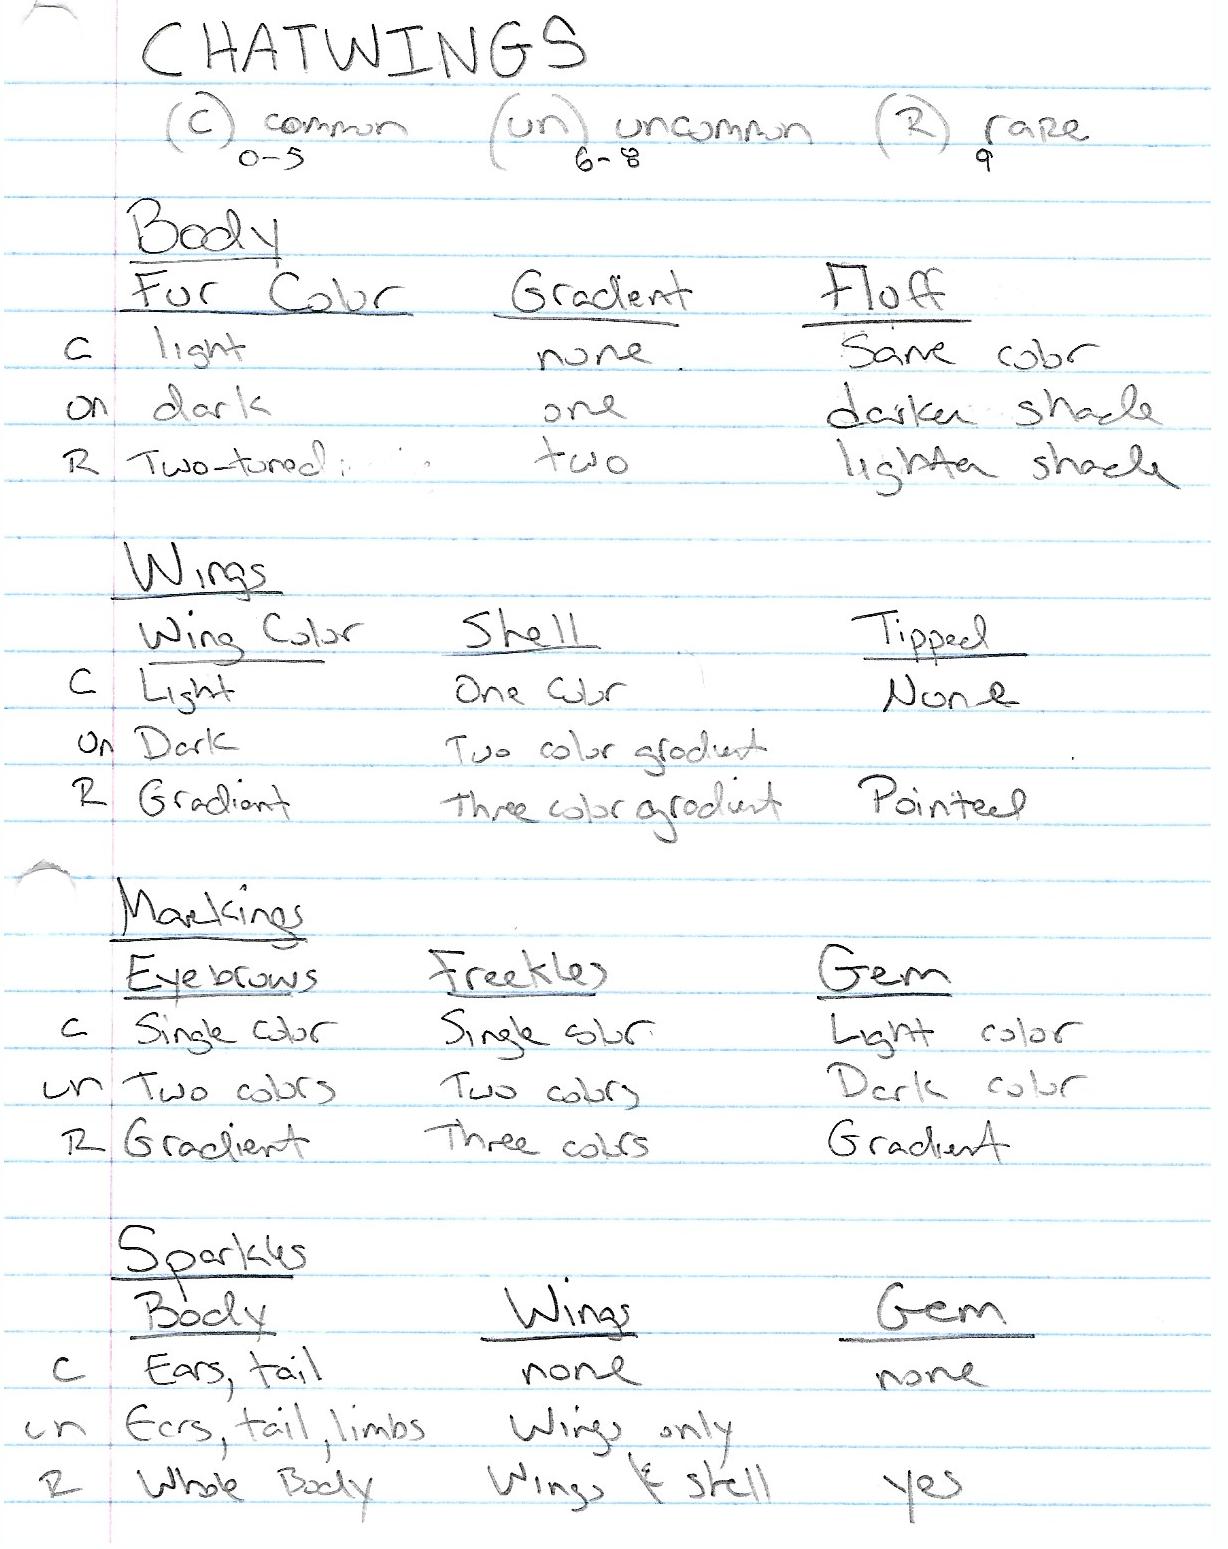 CHATWINGS
(C) common (un) uncommon (R) rare
0-5 6-8 9
Body
Fur Color Gradient Floff
C light none Same color
un dark one darker shade
R Two-toned two lighter shade
Wings
Wing Color Shell Tipped
C Light One Color None
un Dark Two color gradient
R Gradient Three color gradient Pointed
Markings
Eyebrows Freekles Gem
C Single color Single color Light color
un Two colors Two colors Dark color
R Gradient Three colors Gradient
Sparkles
Body Wings Gem
C Ears, tail none none
un Ears, tail, limbs Wings only
R Whole Body Wings & shell yes